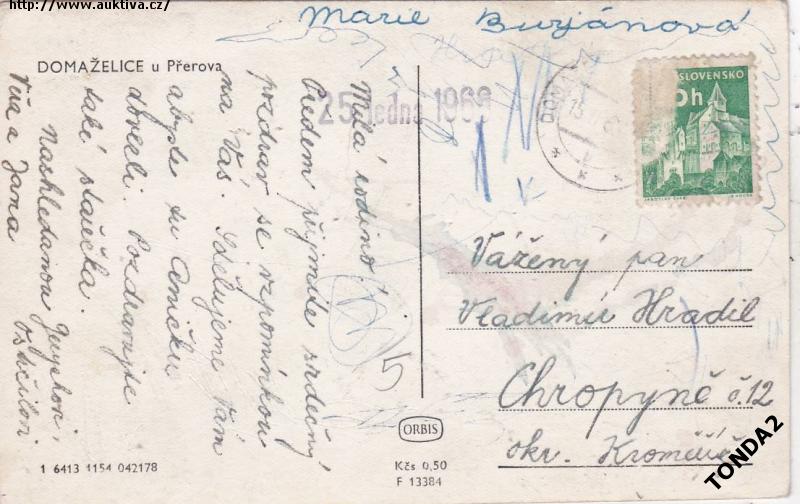 http://www.auktiva.cz/
Marie Burjánová
DOMAŽELICE u Přerova
25. ledna 1968
DOMAŽ
SLOVENSKO
h
Milá rodino!
Předem přijměte srdečný
pozdrav se vzpomínkou
na Vás. Sdělujeme Vám
abyste tu Aničku
dovezli. Pozdravujte
také stařečka.
Nashledanou
Víťa a Jana
Vážený pan
Vladimír Hradil
Chropyně č. 12
okr. Kroměříž
ORBIS
Kčs 0,50
F 13384
1 6413 1154 042178
TONDA2